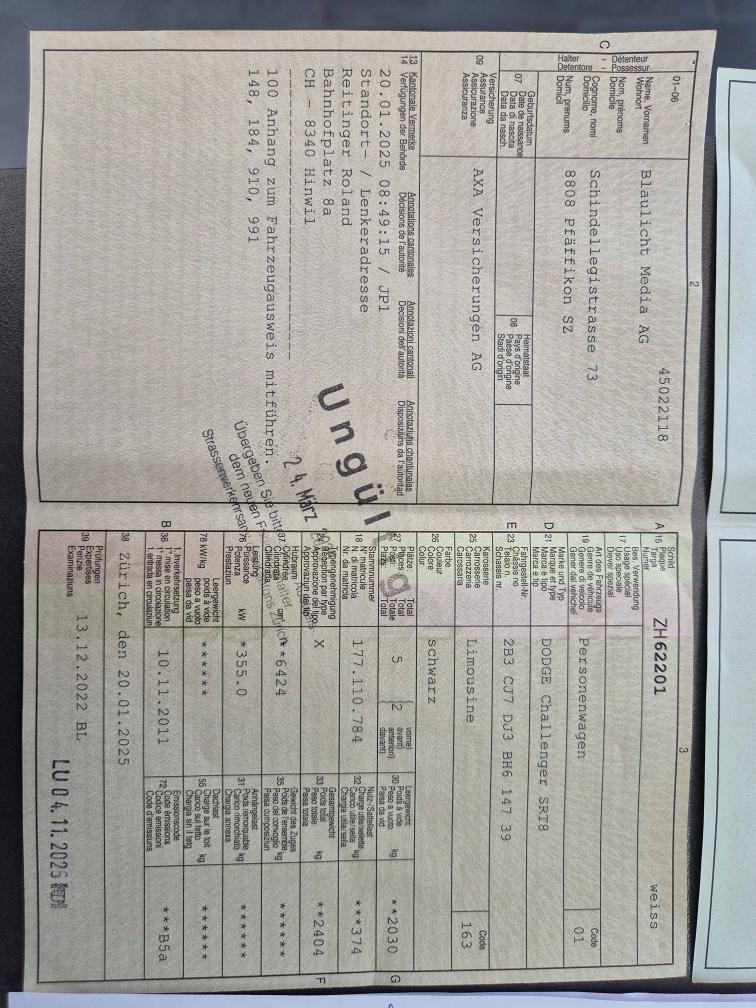 2
C
Halter
Détenteur
Detentore
Possessur
01-06
Name, Vornamen
Wohnort
Nom, prénoms
Domicile
Cognome, nomi
Domicilio
Num, prenums
Domicil
45022118
Blaulicht Media AG
Schindellegistrasse 73
8808 Pfäffikon SZ
07
Geburtsdatum
Date de naissance
Data di nascita
Data da nasch.
08
Heimatstaat
Pays d'origine
Paese d'origine
Stadi d'origin
09
Versicherung
Assurance
Assicurazione
Assicuranza
AXA Versicherungen AG
13 Kantonale Vermerke Annotations cantonales Annotazioni cantonali Annotaziuns chantunalas
14 Verfügungen der Behörde Décisions de l'autorité Decisioni dell'autorità Disposiziuns da l'autoritad
20.01.2025 08:49:15 / JP1
Standort- / Lenkeradresse
Reitinger Roland
Bahnhofplatz 8a
CH - 8340 Hinwil
100 Anhang zum Fahrzeugausweis mitführen.
148, 184, 910, 991
Ungül
24. März
Übergeben Sie bitte
dem neuen
Strassenverkehrsa
3
A 15
Schild
Plaque
Targa
Numer
ZH62201
weiss
17
Bes. Verwendung
Usage spécial
Uso speciale
Diever spezial
19
Art des Fahrzeugs
Genre de véhicule
Genere di veicolo
Gener dal vehichel
Personenwagen
Code
01
D 21
Marke und Typ
Marque et type
Marca e tipo
Marca e tip
DODGE Challenger SRT8
E 23
Fahrgestell-Nr.
Châssis no
Telaio n.
Schassis nr.
2B3 CJ7 DJ3 BH6 147 39
25
Karosserie
Carrosserie
Carrozzeria
Carossaria
Limousine
Code
163
26
Farbe
Couleur
Colore
Colur
schwarz
27
Plätze: Total
Places: Total
Totale
Total
5
(2
vorne)
avant)
anteriori)
davant)
30
Leergewicht
Poids à vide
Peso a vuoto
Paisa da vid
kg
**2030
G
18
Stammnummer
N° matricule
N. di matricola
Nr. da matricla
177.110.784
32
Nutz-/Sattellast
Charge utile/sellette
Carico utile/sella
Chargia utila/sella
kg
***374
24
Typengenehmigung
X
33
Gesamtgewicht
Poids total
Peso totale
Paisa totala
kg
**2404
F
37
Hubraum
Cylindrée
Cilindrata
cm³
**6424
35
Gewicht des Zuges
Poids de l'ensemble
Peso del convoglio
Paisa cumposiziun
kg
******
76
Leistung
Puissance
Potenza
Prestaziun
kW
*355.0
31
Anhängelast
Poids remorquable
Carico rimorchiato
Chargia annexa
kg
******
78 kW/kg
Leergewicht
poids à vide
peso a vuoto
paisa da vid
******
55
Dachlast
Charge sur le toit
Carico sul tetto
Chargia sin il tetg
kg
******
B 36
1. Inverkehrsetzung
1re mise en circulation
1a messa in circolazione
1. entrada en circulaziun
10.11.2011
72
Emissionscode
Code émissions
Codice emissioni
Code d'emissiuns
***B5a
38 Zürich, den 20.01.2025
39
Prüfungen
Expertises
Perizie
Examinaziuns
13.12.2022 BL
LU 04.11.2025